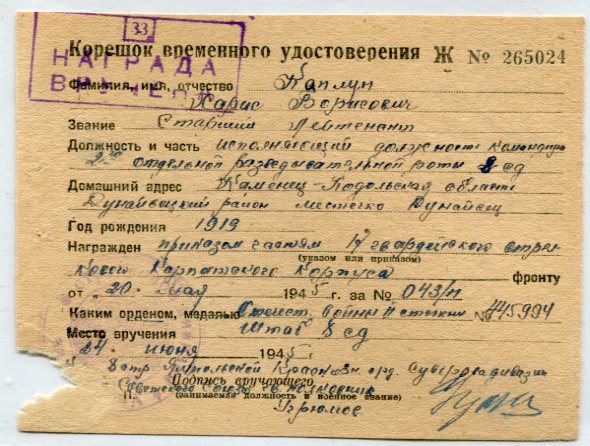 33
НАГРАДА
ВРУЧЕНА
Корешок временного удостоверения Ж № 265024
Фамилия, имя, отчество Каплун
Харис Борисович
Звание Старший Лейтенант
Должность и часть исполняющий должность командира
2ой отдельной разведывательной роты 8 сд
Домашний адрес Каменец-Подольская область
Дунаевецкий район местечко Дунаевец
Год рождения 1919
Награжден приказом частям 17 гвардейского стрел
(указом или приказом)
кового Карпатского Корпуса фронту
от "20" Мая 1945 г. за № 043/н
Каким орденом, медалью Отечест. Войны II степени № 445994
Место вручения Штаб 8 сд
24 июня 1945
Ямпольской Краснозн. орд. Суворова дивизии
Подпись вручающего
Советского Союза подполковник
(занимаемая должность и военное звание)
Угрюмов